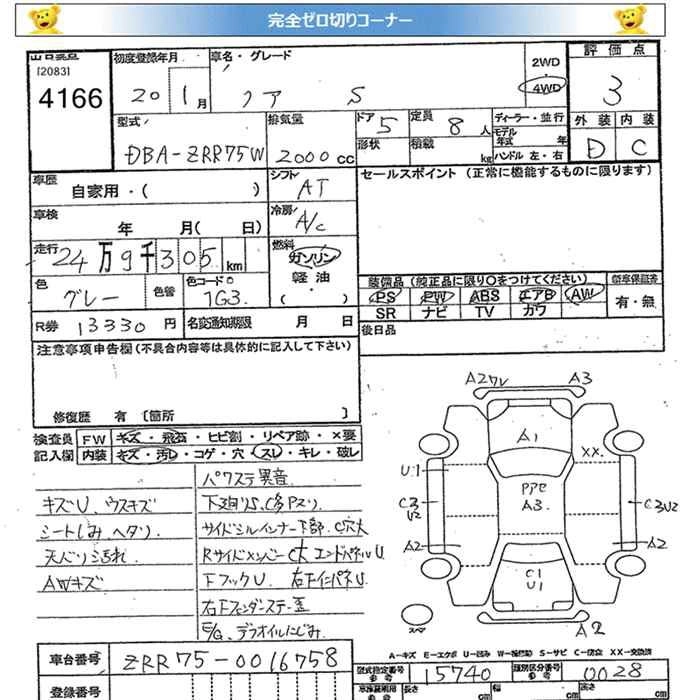 完全ゼロ切りコーナー
[2083]
4166
初度登録年月
20 1月
車名・グレード
ノア S
2WD
4WD
評価点
3
外装 内装
D C
型式
DBA-ZRR75W
排気量
2000cc
ドア 5
定員 8人
形状
積載 kg
ディーラー・並行
モデル年式 年
ハンドル 左・右
車歴
自家用・( )
シフト
AT
セールスポイント (正常に機能するものに限ります)
車検
年 月( 日)
冷房
A/c
走行
24万9千305km
燃料
ガソリン
軽油
( ・ )
色
グレー
色替
色コードNo
1G3
装備品(純正品に限り○をつけてください)
新車保証書
PS PW ABS エアB AW
SR ナビ TV カワ
有・無
R券 13330円
名変通知期限 月 日
後日品
注意事項申告欄(不具合内容等は具体的に記入して下さい)
修復歴 有 [箇所 ]
検査員記入欄
FW キズ・飛石・ヒビ割・リペア跡・×要
内装 キズ・汚レ・コゲ・穴・スレ・キレ・破レ
パワステ異音
キズU、ウスキズ
シートしみ、ヘタリ
天バリ汚れ
AWキズ
サイドシルインナー下部、C穴大
Rサイドメンバー C大 エンドパネルU
下フックU
A2 A3
A1
XX
U1
C3 U2
Pアセ
A3
C3U2
A2
A2
C1
U1
スペア
A2
A-キズ E-エクボ U-凹み W-補修跡 S-サビ C-腐食 XX-交換済
車台番号 ZRR75-0016758
型式指定番号 参考 15740
類別区分番号 参考 0028
登録番号
長さ cm
幅 cm
高さ cm